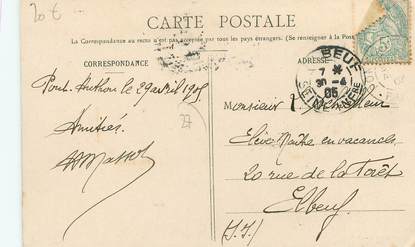 20 €
CARTE POSTALE
La Correspondance au recto n'est pas acceptée par tous les pays étrangers. (Se renseigner à la Poste
CORRESPONDANCE
ADRESSE
BEUF
7
30 - 4
05
5
Pont-Authou le 29 avril 1905
Monsieur
Amitiés.
Elève-Maître en vacances
20 rue de la Forêt
Elbeuf
(S.I.)
27